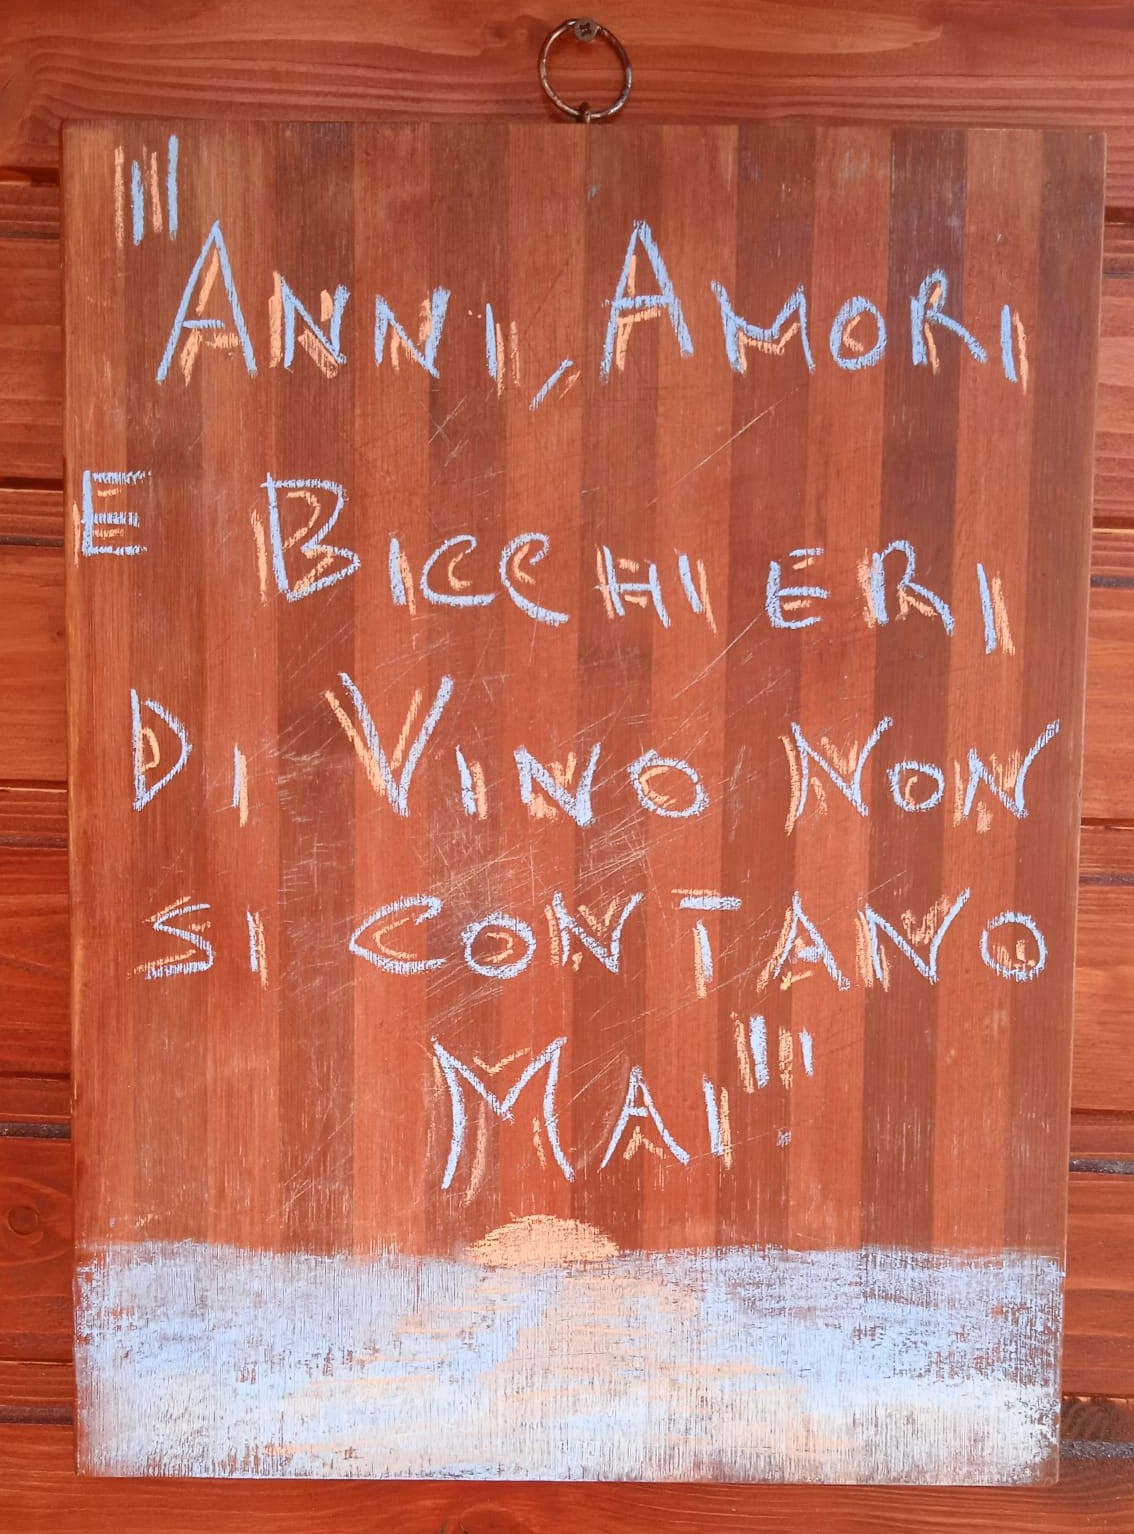 "Anni, Amori
e Bicchieri
di Vino non
si contano
Mai"